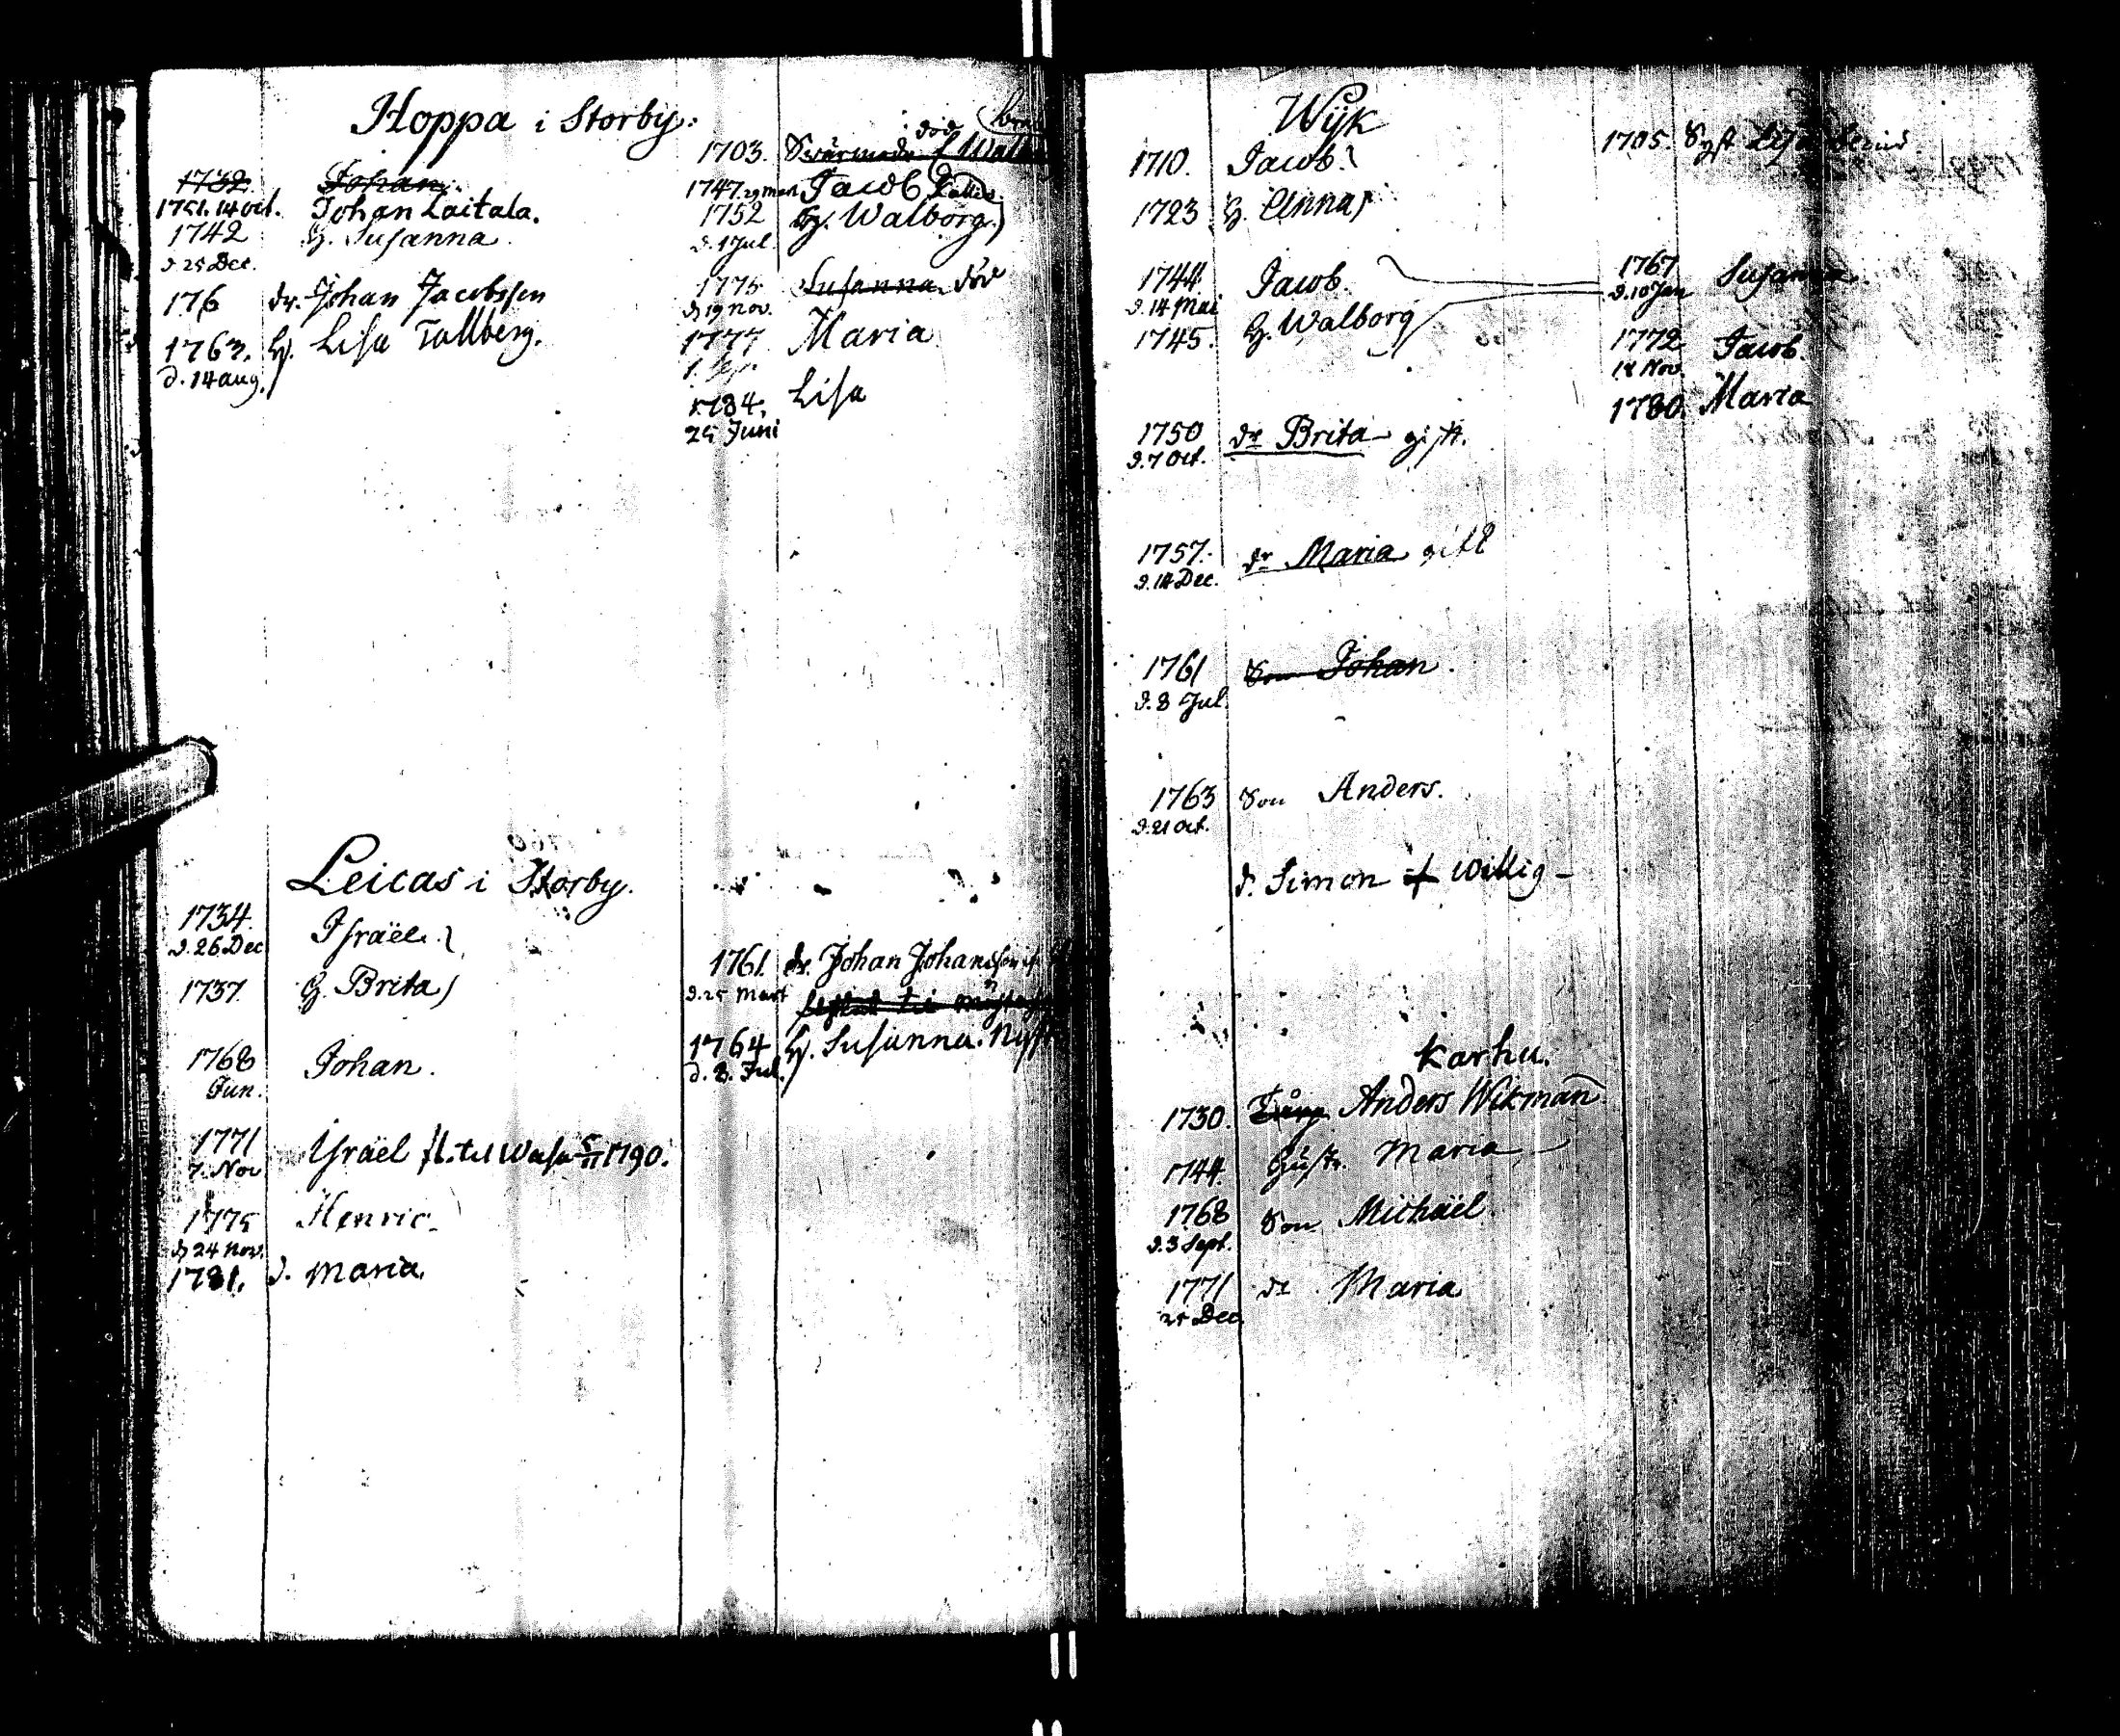 Hoppa i Storby.
1732 Johan
1751. 14 Oct. Johan Laitala.
1742 H. Susanna
d. 25 Dec.
176 dr. Johan Jacobsson
1763. H. Lisa Tallberg.
d. 14 aug.
död
1703. Swärmodr Walb
1747. 29 Mart. Jacob
1752 H. Walborg
d. 1 Jul.
1775 Susanna död
d 19 Nov.
1777 Maria
1. Sep.
1784. Lisa
25 Juni
Leicas i Storby.
1734. Israël
d. 26 Dec
1737 H. Brita
1768 Johan.
Jun.
1771 Israël fl. til Wasa 5/11 1790.
7. Nov
1775 Henric
d 24 Nov.
1781. d. Maria.
1761. dr. Johan Johansson
d. 25 Mart
1764 H. Susanna
d. 8. Jul.
Wijk
1710. Jacob
1723 H. Anna
1744. Jacob
d. 14 Mai
1745. H. Walborg
1750 dr Brita gift.
d. 7 Oct.
1757. dr Maria gift
d. 14 Dec.
1761 Son Johan
d. 8 Jul
1763 Son Anders.
d. 21 Oct.
d. Simon Willig
1705. Syst Lisa
1767 Susanna
d. 10 Jan
1772 Jacob
18 Nov.
1780. Maria
Karhu.
1730. Anders Wikman
1744. Hustr. Maria
1768 Son Michaël
d. 3 Sept.
1771 dr Maria
25 Dec